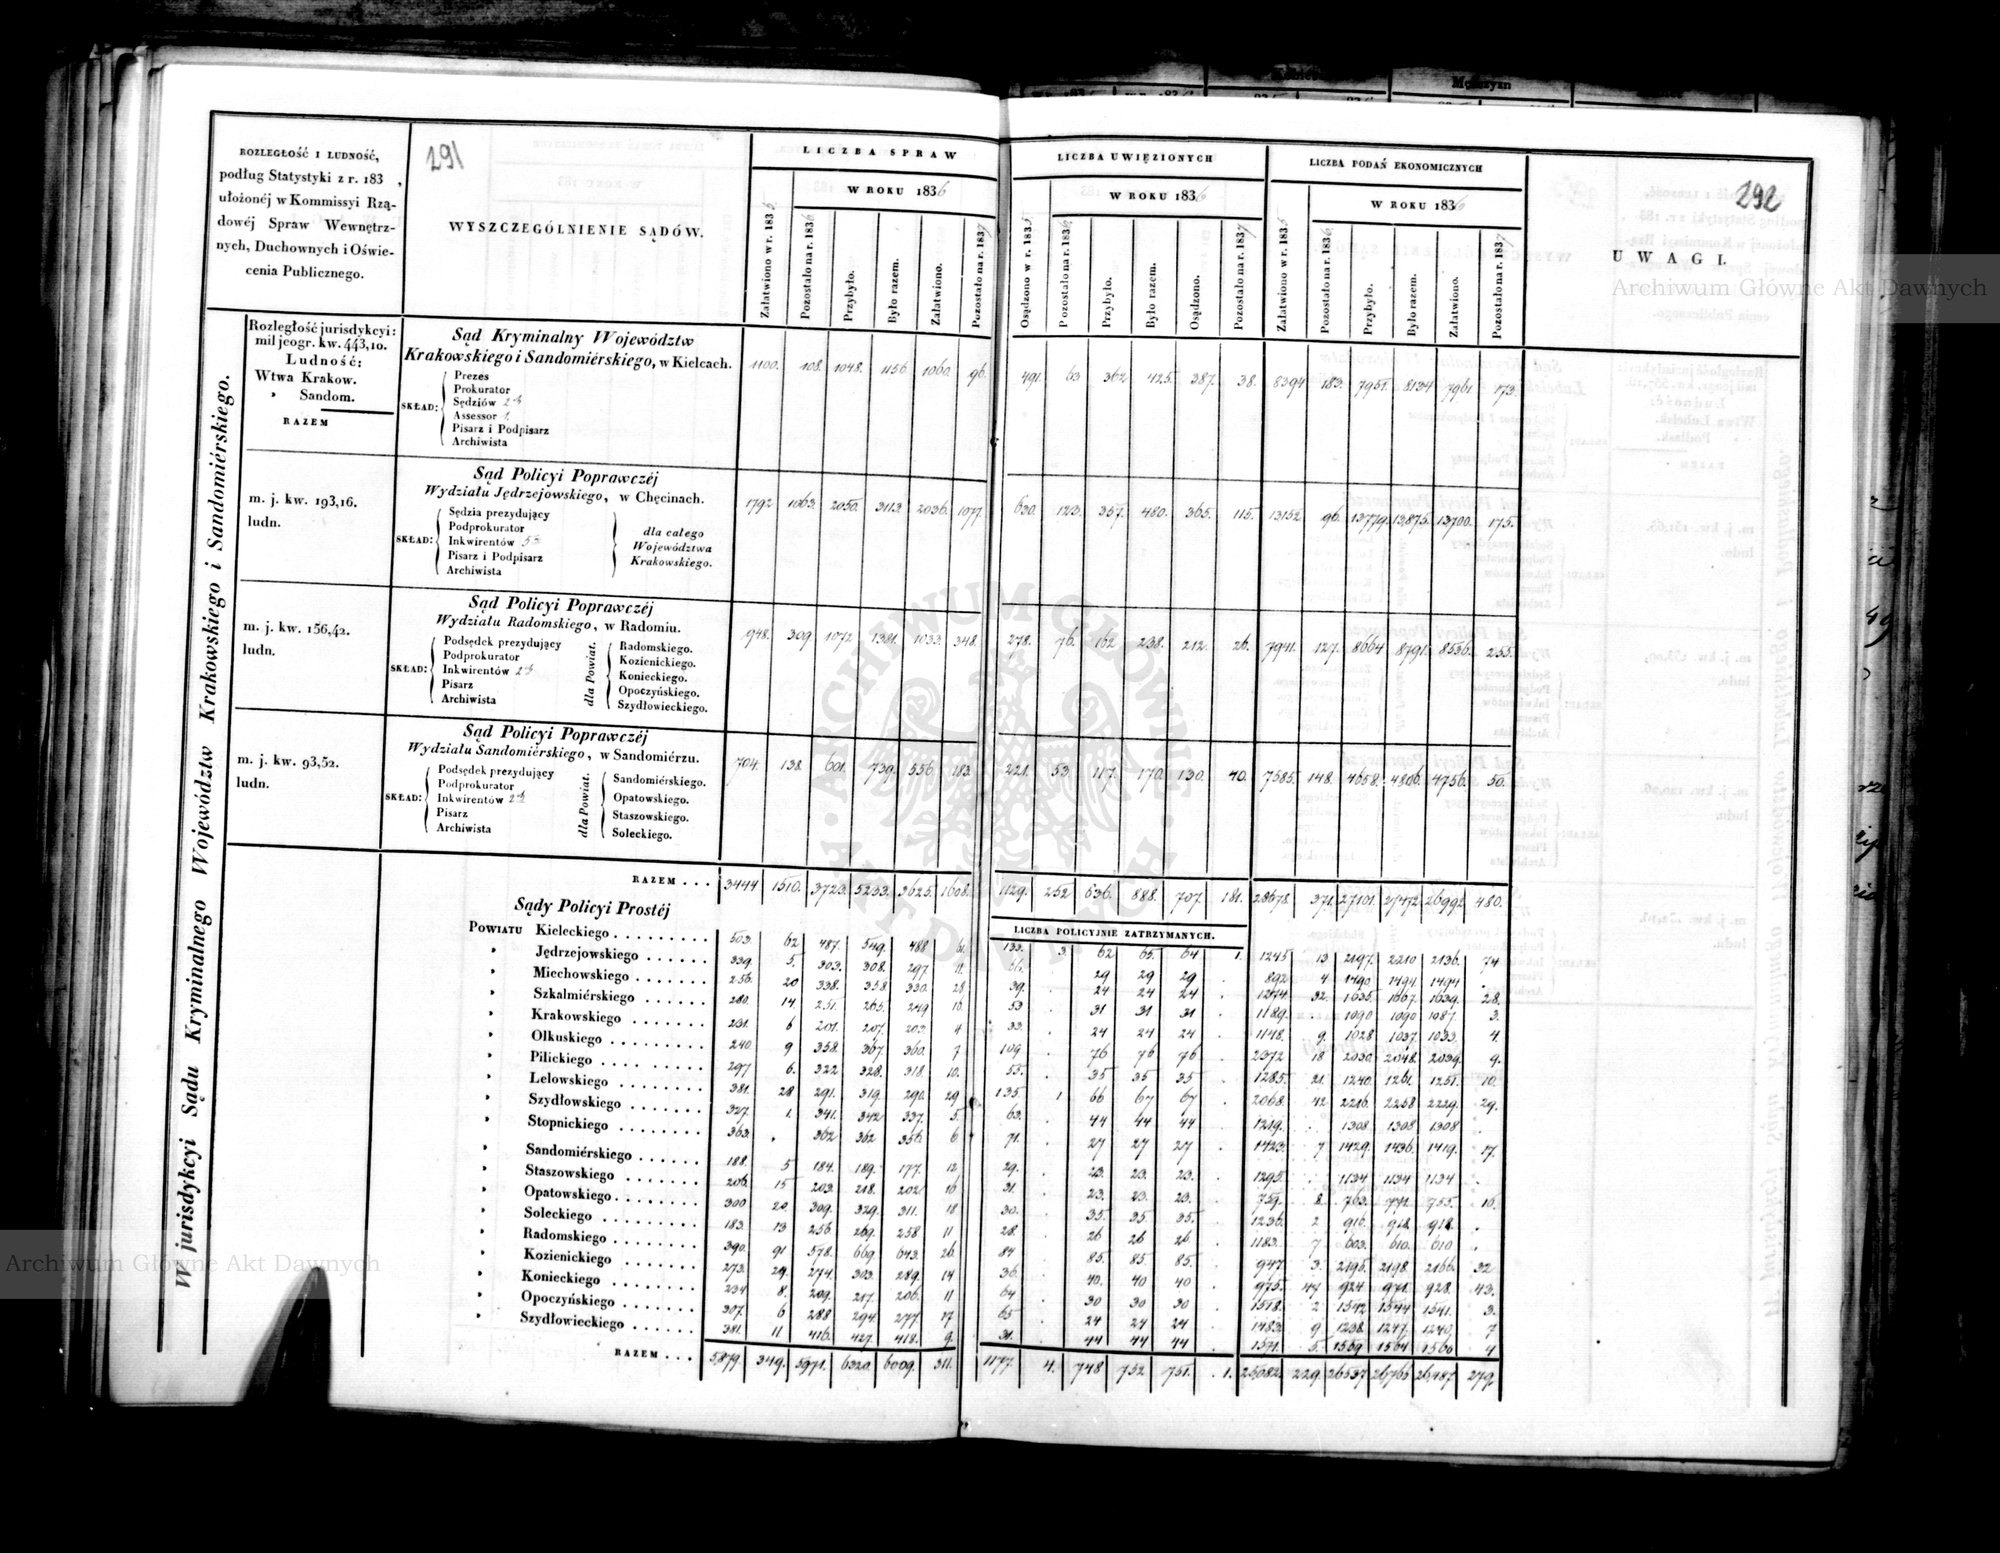 291
292
ROZLEGŁOŚĆ I LUDNOŚĆ,
podług Statystyki z r. 183 ,
ułożonéj w Kommissyi Rzą-
dowéj Spraw Wewnętrz-
nych, Duchownych i Oświe-
cenia Publicznego.
WYSZCZEGÓLNIENIE SĄDÓW.
LICZBA SPRAW
W ROKU 1836
Załatwiono w r. 1835
Pozostało na r. 1836
Przybyło.
Było razem.
Załatwiono.
Pozostało na r. 1837
LICZBA UWIĘZIONYCH
W ROKU 1836
Osądzono w r. 1835
Pozostało na r. 1836
Przybyło.
Było razem.
Osądzono.
Pozostało na r. 1837
LICZBA PODAŃ EKONOMICZNYCH
W ROKU 1836
Załatwiono w r. 1835
Pozostało na r. 1836
Przybyło.
Było razem.
Załatwiono.
Pozostało na r. 1837
UWAGI.
W jurisdykcyi Sądu Kryminalnego Województw Krakowskiego i Sandomiérskiego.
Rozległość jurisdykcyi:
mil jeogr. kw. 443,10.
Ludność:
Wtwa Krakow.
" Sandom.
RAZEM
Sąd Kryminalny Województw
Krakowskiego i Sandomiérskiego, w Kielcach.
SKŁAD:
Prezes
Prokurator
Sędziów
Assessor 1.
Pisarz i Podpisarz
Archiwista
1100. 108. 1048. 1156. 1060. 96. 491. 63. 362. 425. 387. 38. 8394. 183. 7951. 8134. 7961. 173.
m. j. kw. 193,16.
ludn.
Sąd Policyi Poprawczéj
Wydziału Jędrzejowskiego, w Chęcinach.
SKŁAD:
Sędzia prezydujący
Podprokurator
Inkwirentów
Pisarz i Podpisarz
Archiwista
dla całego
Województwa
Krakowskiego.
1792. 1063. 2050. 3113. 2036. 1077. 630. 123. 357. 480. 365. 115. 13152. 96. 13779. 13,875. 13700. 175.
m. j. kw. 156,42.
ludn.
Sąd Policyi Poprawczéj
Wydziału Radomskiego, w Radomiu.
SKŁAD:
Podsędek prezydujący
Podprokurator
Inkwirentów
Pisarz
Archiwista
dla Powiat.
Radomskiego.
Kozienickiego.
Konieckiego.
Opoczyńskiego.
Szydłowieckiego.
948. 309. 1072. 1381. 1033. 348. 278. 76. 162. 238. 212. 26. 7941. 127. 8664. 8791. 8536. 255.
m. j. kw. 93,52.
ludn.
Sąd Policyi Poprawczéj
Wydziału Sandomiérskiego, w Sandomiérzu.
SKŁAD:
Podsędek prezydujący
Podprokurator
Inkwirentów
Pisarz
Archiwista
dla Powiat.
Sandomiérskiego.
Opatowskiego.
Staszowskiego.
Soleckiego.
704. 138. 601. 739. 556. 183. 221. 53. 117. 170. 130. 40. 7585. 148. 4658. 4806. 4756. 50.
RAZEM . . . 3444 1510. 3723. 5233. 3625. 1608. 1129. 252 636. 888. 707. 181. 28678. 371. 27101. 27472. 26992. 480.
Sądy Policyi Prostéj
LICZBA POLICYJNIE ZATRZYMANYCH.
POWIATU Kieleckiego . . . 503. 62 487. 549. 488 61. 133. 3. 62 65. 64 1. 1245 13 2197. 2210 2136. 74
" Jędrzejowskiego . . . 339. 5. 303. 308. 297. 11. 66. . 29 29 29 . 892 4 1490. 1494. 1494
" Miechowskiego . . . 256. 20 338. 358. 330. 28 39. . 24 24 24 . 32. 1635. 1667. 1639. 28.
" Szkalmiérskiego . . . 280. 14 251. 265. 249 16. 53 . 31 31 31 . 1189. . 1090 1090 1087 3.
" Krakowskiego . . . 231. 6 201. 207. 203. 4 33. . 24 24 24 . 1148. 9. 1028 1037. 1033. 4.
" Olkuskiego . . . 240. 9 358. 367. 360. 7 109 . 76 76 76 . 2372 18 2030. 2048. 2039. 9.
" Pilickiego . . . 297 6. 322 328. 318. 10. 53. . 35 35 35 . 1285. 21. 1240. 1261. 1251. 10.
" Lelowskiego . . . 381. 28 291. 319. 290. 29 135. 1 66 67 67 . 2068. 42 2216. 2258 2229. 29.
" Szydłowskiego . . . 327. 1. 341. 342 337. 5. 63. . 44 44 44 . 1219. . 1308 1308 1308
" Stopnickiego . . . 363. . 362 362 356. 6 71. . 27 27 27 . 1423. 7 1429. 1436. 1419. 17.
" Sandomiérskiego . . . 188. 5 184. 189. 177. 12 29. . 23. 23. 23. . 1295. . 1134 1134 1134
" Staszowskiego . . . 206. 15 203. 218. 202 16 31. . 23. 23. 23. . 759. 8. 763. 771. 755. 16.
" Opatowskiego . . . 300 20. 309. 329. 311. 18 30. . 35. 35. 35. . 1236. 2 916. 918. 918.
" Soleckiego . . . 183. 13 256. 269. 258 11 28. . 26 26 26 . 1183. 7 603. 610. 610
" Radomskiego . . . 390. 91 578. 669 643. 26. 84 . 85. 85. 85. . 947. 3. 2195. 2198. 2166. 32
" Kozienickiego . . . 273. 29. 274. 303. 289. 14 36. . 40. 40 40 . 975. 47 924 971. 928. 43.
" Konieckiego . . . 234 8. 209. 217. 206. 11 64 . 30 30 30 . 1518. 2 1542 1544 1541. 3.
" Opoczyńskiego . . . 307. 6 288 294 277 17 65 . 24 24 24 . 1483. 9 1238. 1247. 1240. 7
" Szydłowieckiego . . . 381. 11. 416. 427. 418. 9. 31. . 44 44 44 . 1571. 5. 1559 1564 1560 4
RAZEM . . . 5,879. 349. 5971. 6320. 6009. 311. 1177. 4. 748 752 751. 1. 25,082. 229. 26537 26766 26,487 279.
Archiwum Główne Akt Dawnych
Archiwum Główne Akt Dawnych
ARCHIWUM GŁÓWNE AKT DAWNYCH